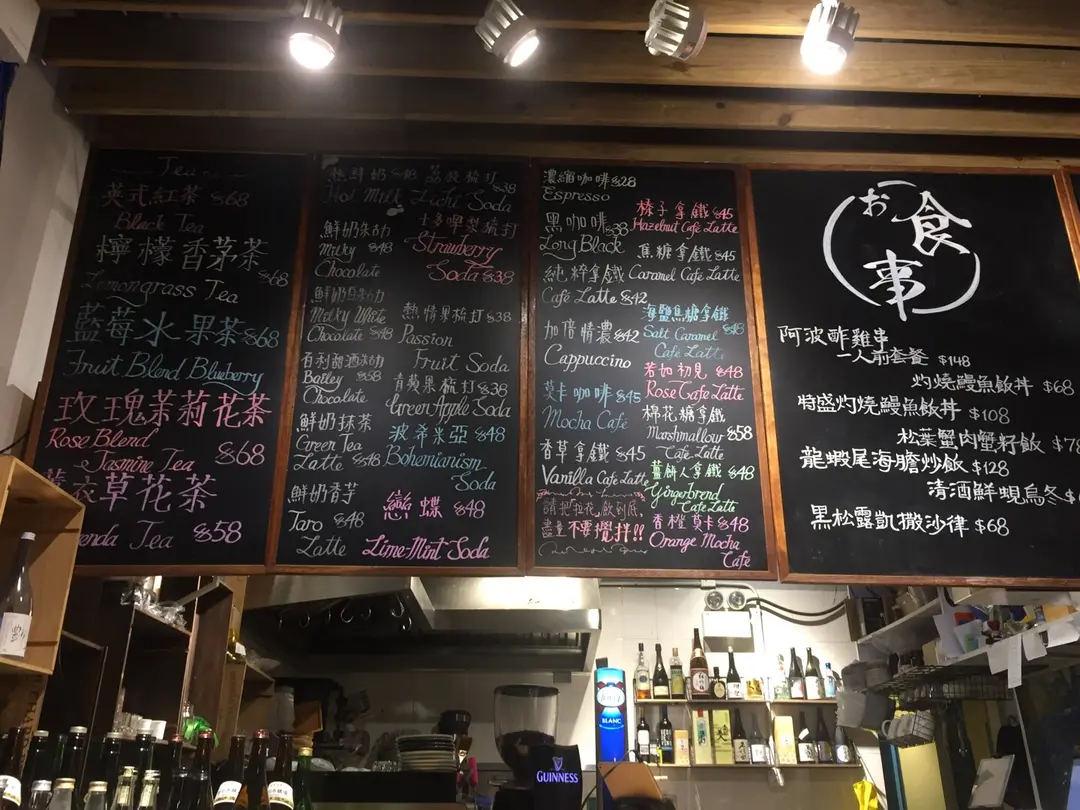 Tea
英式紅茶 $68
Black Tea
檸檬香茅茶 $68
Lemongrass Tea
藍莓水果茶 $68
Fruit Blend Blueberry
玫瑰茉莉花茶
Rose Blend
Jasmine Tea $68
衣草花茶
enda Tea $58
熱鮮奶 $48
Hot Milk
鮮奶朱古力
Milky $48
Chocolate
鮮奶白朱古力
Milky White
Chocolate $48
百利甜酒朱古力
Bailey $58
Chocolate
鮮奶抹茶
Green Tea
Latte $48
鮮奶香芋
Taro $48
Latte
荔枝梳打
Lichi Soda $38
士多啤梨梳打
Strawberry
Soda $38
熱情果梳打 $38
Passion
Fruit Soda
青蘋果梳打 $38
Green Apple Soda
波希米亞 $48
Bohemianism
Soda
戀蝶 $48
Lime-Mint Soda
濃縮咖啡 $28
Espresso
黑咖啡 $38
Long Black
純粹拿鐵
Café Latte $42
加倍情濃 $42
Cappuccino
莫卡咖啡 $45
Mocha Café
香草拿鐵 $45
Vanilla Café Latte
請把拉花飲到底,
盡量不要攪拌!!
榛子拿鐵 $45
Hazelnut Café Latte
焦糖拿鐵 $45
Caramel Café Latte
海鹽焦糖拿鐵
Salt Caramel $48
Café Latte
若如初見 $48
Rose Cafe Latte
棉花糖拿鐵
Marshmallow $58
Café Latte
薑餅人拿鐵 $48
Gingerbrend
Café Latte
香橙莫卡 $48
Orange Mocha
Café
お食事
阿波酢雞串
一人前套餐 $148
灼燒鰻魚飯丼 $68
特盛灼燒鰻魚飯丼 $108
松葉蟹肉蟹籽飯 $78
龍蝦尾海膽炒飯 $128
清酒鮮蜆烏冬 $
黑松露凱撒沙律 $68
BLANC
GUINNESS